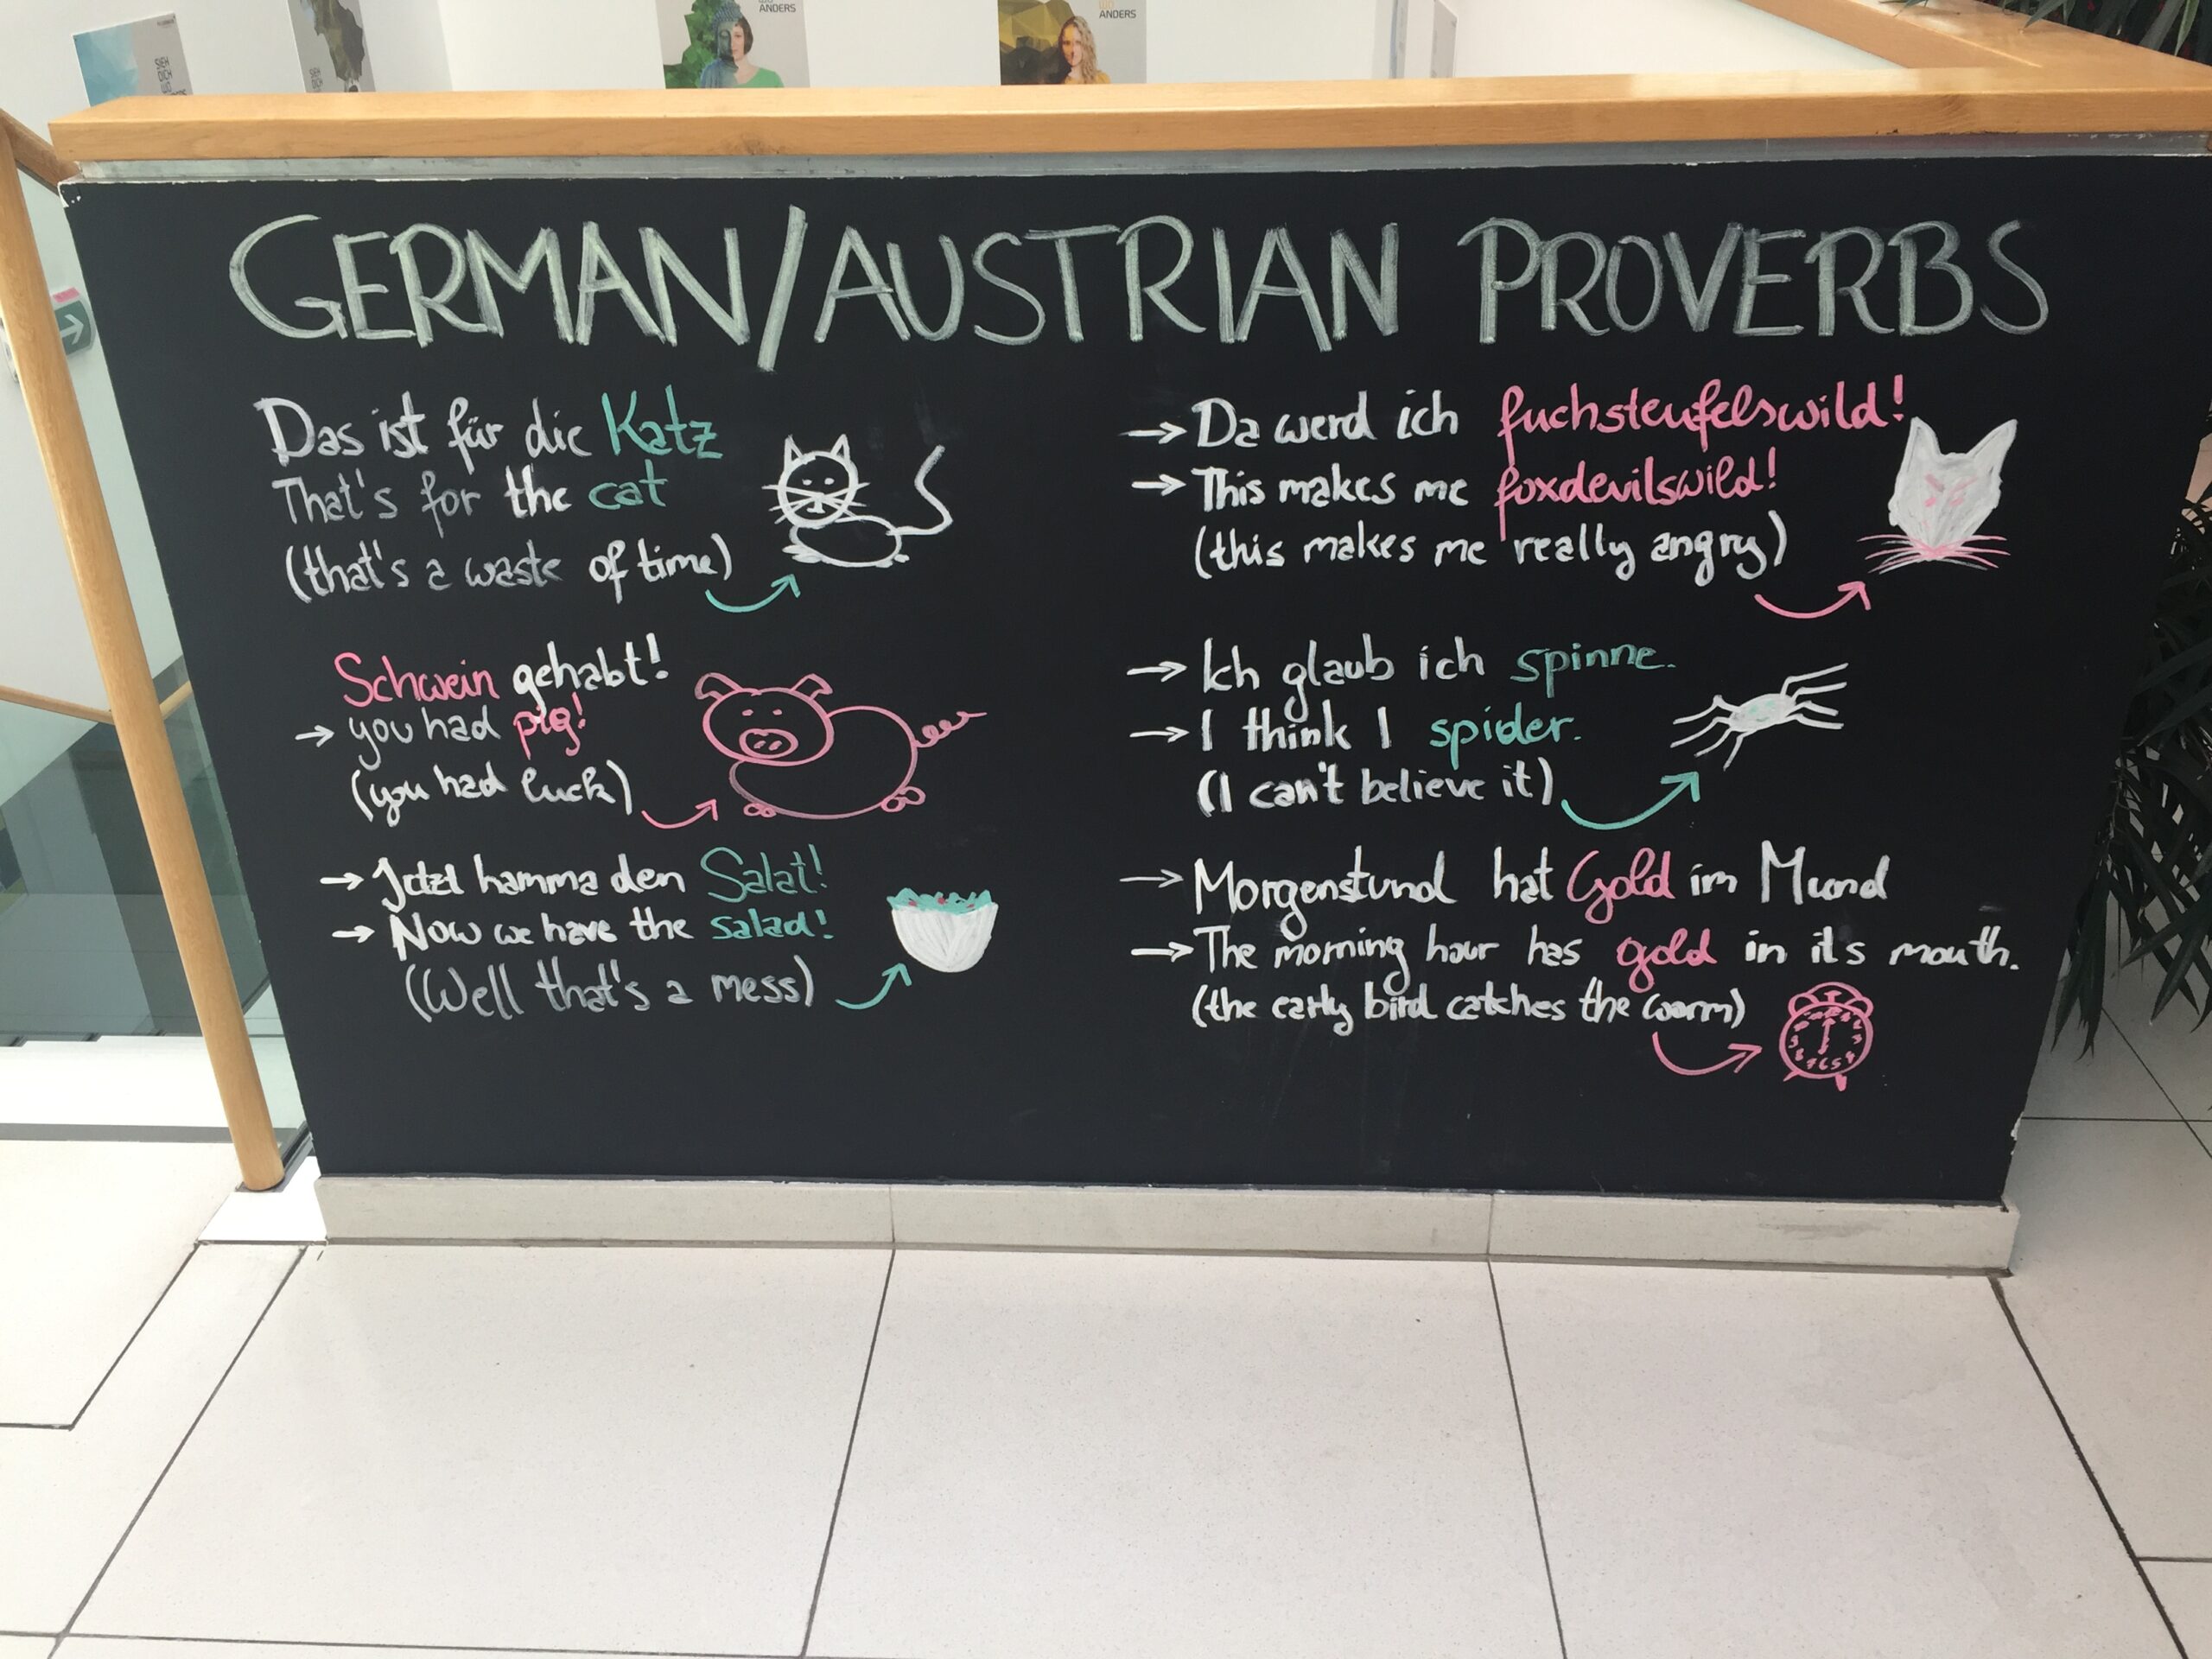 ANDERS
ANDERS
SIEH
DICH
GERMAN/AUSTRIAN PROVERBS
Das ist für die Katz
That's for the cat
(that's a waste of time)
Schwein gehabt!
→ you had pig!
(you had luck)
→ Jetzt hamma den Salat!
→ Now we have the salad!
(Well that's a mess)
→ Da werd ich fuchsteufelswild!
→ This makes me foxdevilswild!
(this makes me really angry)
→ Ich glaub ich spinne.
→ I think I spider.
(I can't believe it)
→ Morgenstund hat Gold im Mund
→ The morning hour has gold in its mouth.
(the early bird catches the worm)